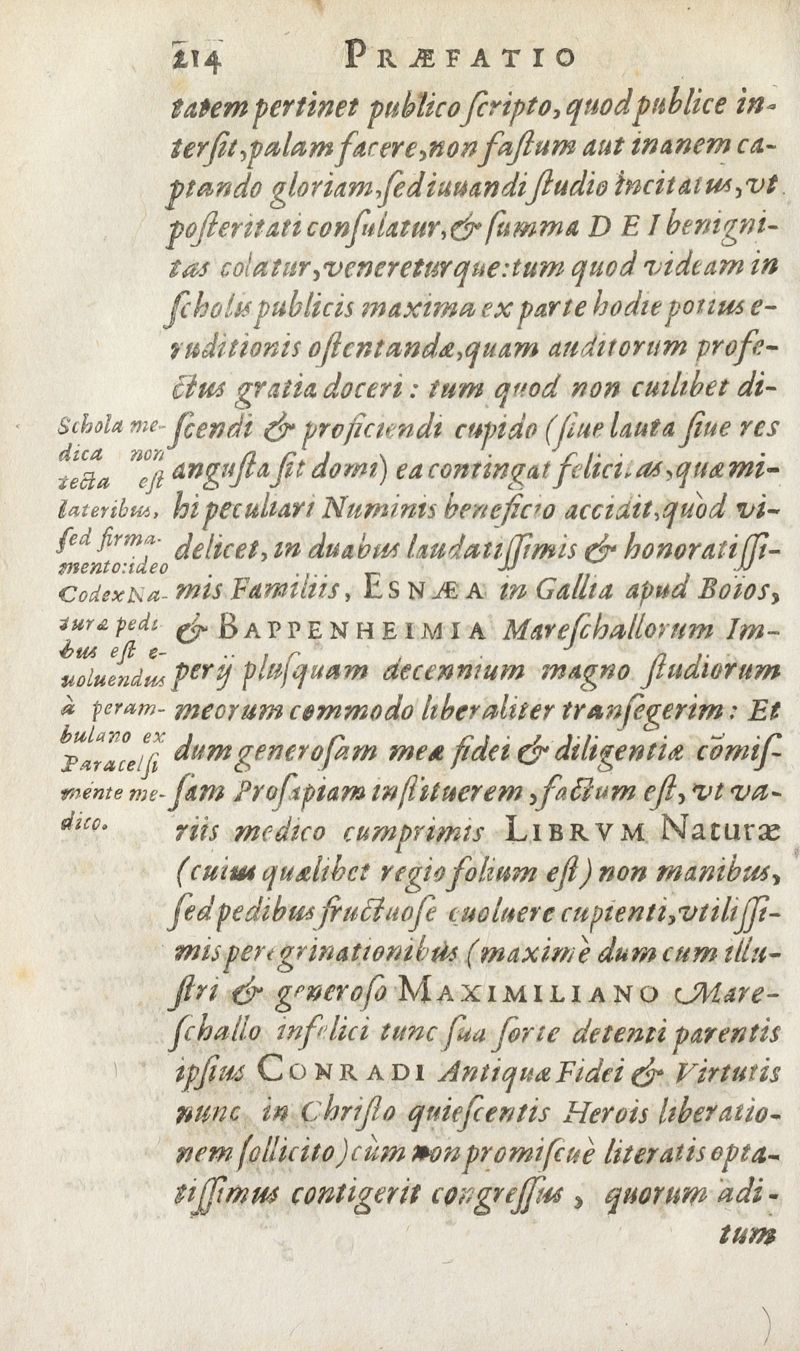 214 PRÆFATIO
tatem pertinet publico ſcripto, quod publice in-
terſit, palam facere, non faſtum aut inanem ca-
ptando gloriam, ſed iuuandi ſtudio incitatus, vt
poſteritati conſulatur, & ſumma DEI benigni-
tas colatur, venereturque: tum quod videam in
ſcholis publicis maxima ex parte hodie potius e-
ruditionis oſtentandæ, quam auditorum profe-
ctus gratia doceri: tum quod non cuilibet di-
ſcendi & proficiendi cupido (ſiue lauta ſiue res
anguſta ſit domi) ea contingat felicitas, quæ mi-
hi peculiari Numinis beneficio accidit, quòd vi-
delicet, in duabus laudatiſſimis & honoratiſſi-
mis Familiis, ESNÆA in Gallia apud Boios,
& BAPPENHEIMIA Mareſchallorum Im-
perij pluſquam decennium magno ſtudiorum
meorum commodo liberaliter tranſegerim: Et
dum generoſam meæ fidei & diligentiæ cōmiſ-
ſam Proſapiam inſtituerem, factum eſt, vt va-
riis medico cumprimis LIBRVM Naturæ
(cuius quælibet regio folium eſt) non manibus,
ſed pedibus fructuoſe euoluere cupienti, vtiliſſi-
mis peregrinationibus (maximè dum cum illu-
ſtri & generoſo MAXIMILIANO Mare-
ſchallo infelici tunc ſua ſorte detenti parentis
ipſius CONRADI Antiquæ Fidei & Virtutis
nunc in Chriſto quieſcentis Herois liberatio-
nem ſollicito) cùm non promiſcuè literatis opta-
tiſſimus contigerit congreſſus, quorum adi-
tum
Schola me-
dica non
tecta eſt
lateribus,
ſed firma-
mento: ideo
Codex Na-
turæ pedi
bus eſt e-
uoluendus
à peram-
bulaturo ex
Paracelſi
mente me-
dico.